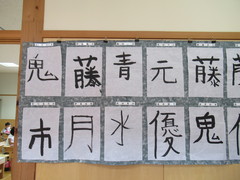 鬼 藤 青 元 藤
市 月 水 優 鬼